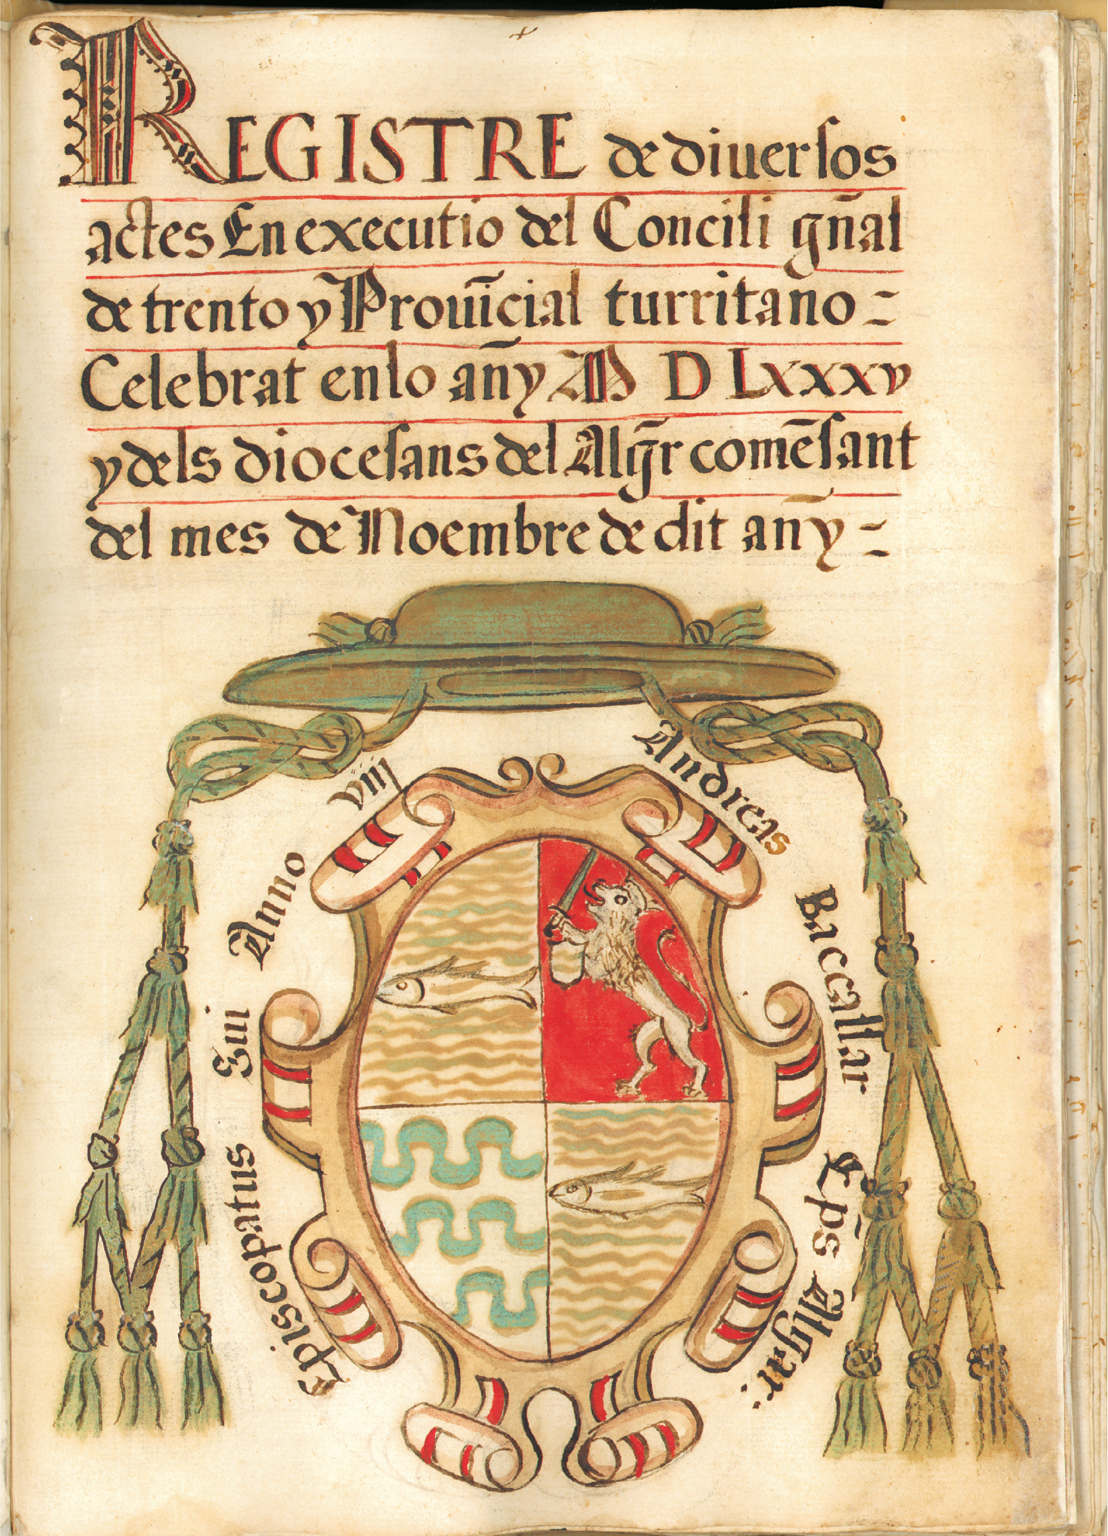 REGISTRE de diuersos
actes En executio del Concili gñal
de trento y Prouĩcial turritano =
Celebrat en lo añy M D Lxxxv
y dels diocesans del Alg̃r comẽsant
del mes de Noembre de dit añy =
Andreas Baccallar Ep̃s Algar:
Episcopatus Sui Anno viij